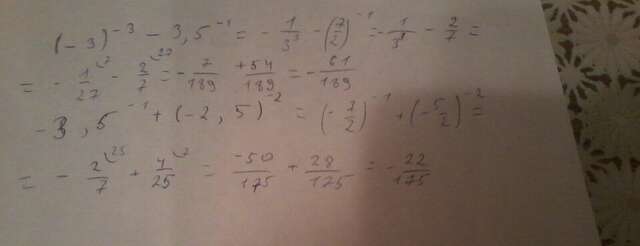 (-3)^{-3} - 3,5^{-1} = -\frac{1}{3^3} - (\frac{7}{2})^{-1} = -\frac{1}{3^3} - \frac{2}{7} =
= -\frac{1}{27}^{7} - \frac{2}{7}^{27} = -\frac{7}{189} \frac{+54}{189} = -\frac{61}{189}
-3,5^{-1} + (-2,5)^{-2} = (-\frac{7}{2})^{-1} + (-\frac{5}{2})^{-2} =
= -\frac{2}{7}^{25} + \frac{4}{25}^{7} = \frac{-50}{175} + \frac{28}{175} = -\frac{22}{175}